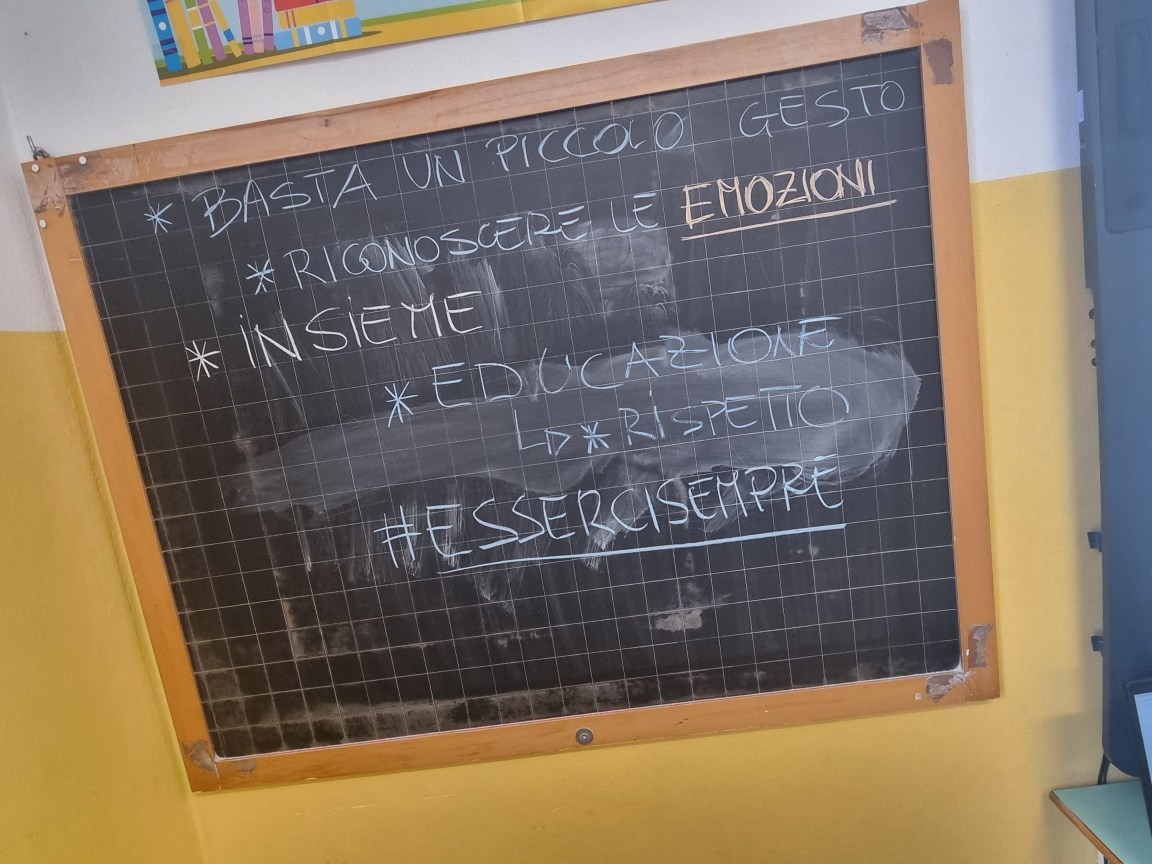 * BASTA UN PICCOLO GESTO
* RICONOSCERE LE EMOZIONI
* INSIEME
* EDUCAZIONE
↳ * RISPETTO
#ESSERCISEMPRE